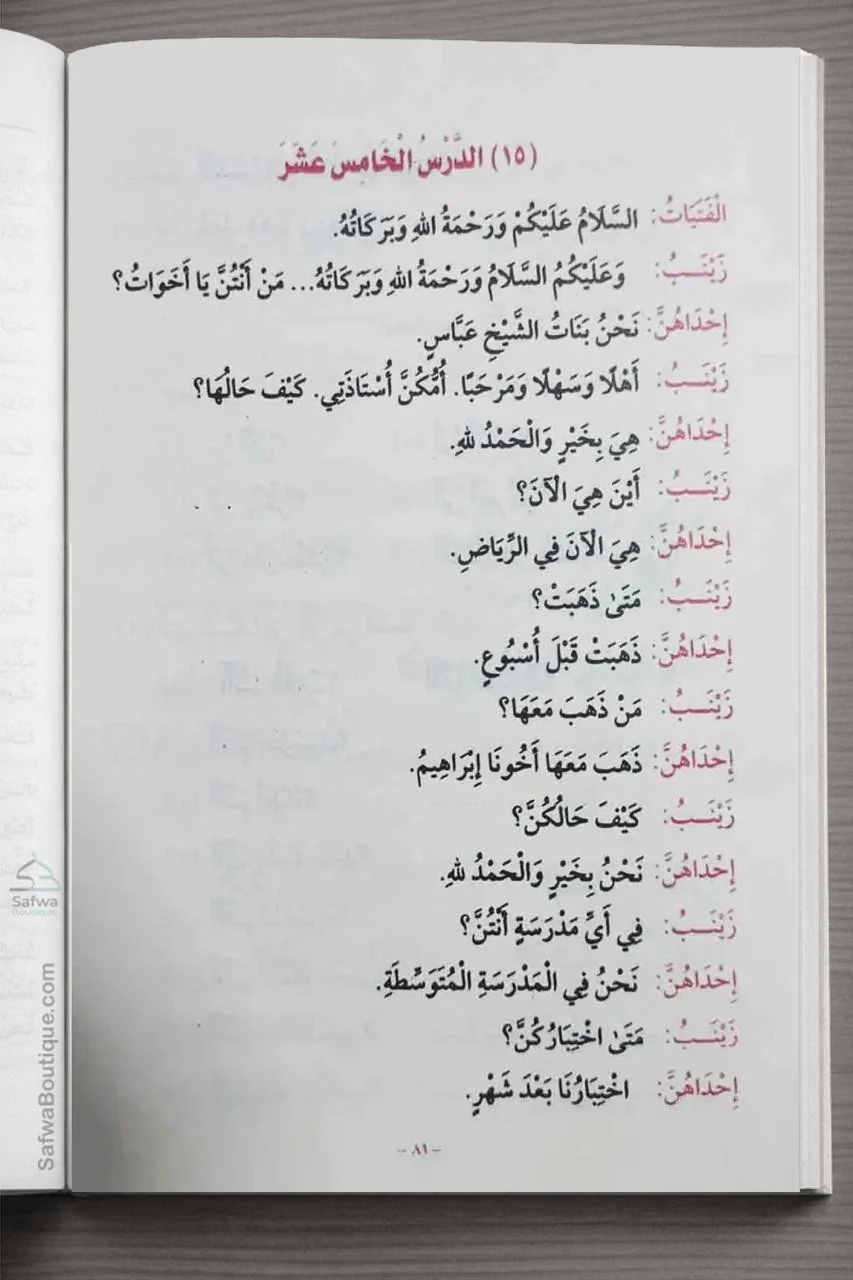 (١٥) الدَّرْسُ الْخَامِسَ عَشَرَ
الْفَتَيَاتُ: السَّلَامُ عَلَيْكُمْ وَرَحْمَةُ اللهِ وَبَرَكَاتُهُ.
زَيْنَــبُ: وَعَلَيْكُمُ السَّلَامُ وَرَحْمَةُ اللهِ وَبَرَكَاتُهُ... مَنْ أَنْتُنَّ يَا أَخَوَاتُ؟
إِحْدَاهُنَّ: نَحْنُ بَنَاتُ الشَّيْخِ عَبَّاسٍ.
زَيْنَــبُ: أَهْلًا وَسَهْلًا وَمَرْحَبًا. أُمُّكُنَّ أُسْتَاذَتِي. كَيْفَ حَالُهَا؟
إِحْدَاهُنَّ: هِيَ بِخَيْرٍ وَالْحَمْدُ للهِ.
زَيْنَــبُ: أَيْنَ هِيَ الْآنَ؟
إِحْدَاهُنَّ: هِيَ الْآنَ فِي الرِّيَاضِ.
زَيْنَــبُ: مَتَىٰ ذَهَبَتْ؟
إِحْدَاهُنَّ: ذَهَبَتْ قَبْلَ أُسْبُوعٍ.
زَيْنَــبُ: مَنْ ذَهَبَ مَعَهَا؟
إِحْدَاهُنَّ: ذَهَبَ مَعَهَا أَخُونَا إِبْرَاهِيمُ.
زَيْنَــبُ: كَيْفَ حَالُكُنَّ؟
إِحْدَاهُنَّ: نَحْنُ بِخَيْرٍ وَالْحَمْدُ للهِ.
زَيْنَــبُ: فِي أَيِّ مَدْرَسَةٍ أَنْتُنَّ؟
إِحْدَاهُنَّ: نَحْنُ فِي الْمَدْرَسَةِ الْمُتَوَسِّطَةِ.
زَيْنَــبُ: مَتَىٰ اخْتِبَارُكُنَّ؟
إِحْدَاهُنَّ: اخْتِبَارُنَا بَعْدَ شَهْرٍ.
- ٨١ -
Safwa
Boutique
SafwaBoutique.com